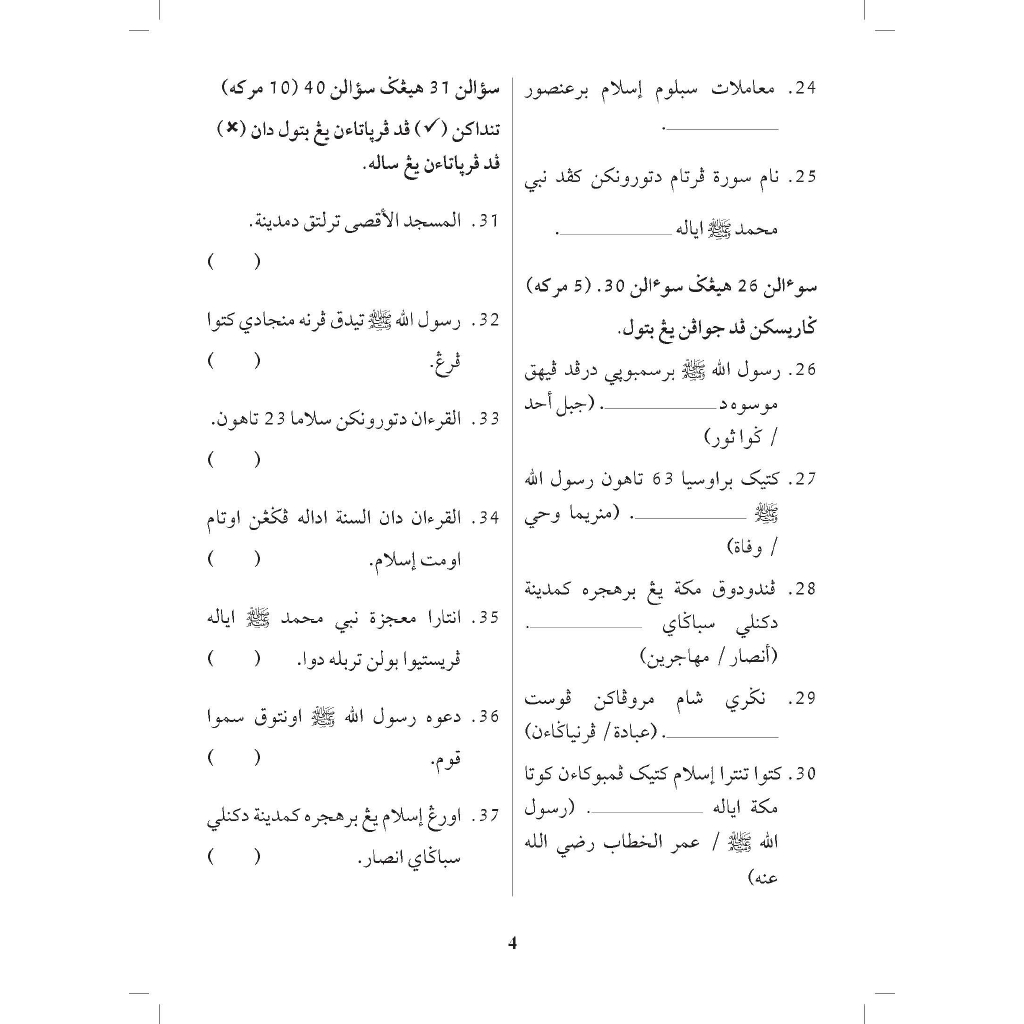 24. معاملات سبلوم إسلام برعنصور
ــــــــــــــــ.
25. نام سورة ڤرتام دتورونكن كڤد نبي
محمد ﷺ اياله ــــــــــــــــ.
سوءالن 26 هيڠݢ سوءالن 30. (5 مركه)
ݢاريسكن ڤد جواڤن يڠ بتول.
26. رسول الله ﷺ برسمبوڽي درڤد ڤيهق
موسوه د ــــــــــــــــ. (جبل أحد
/ ݢوا ثور)
27. كتيک براوسيا 63 تاهون رسول الله
ﷺ ــــــــــــــــ. (منريما وحي
/ وفاة)
28. ڤندودوق مكة يڠ برهجره كمدينة
دكنلي سباݢاي ــــــــــــــــ.
(أنصار / مهاجرين)
29. نݢري شام مروڤاكن ڤوست
ــــــــــــــــ. (عبادة/ ڤرنياݢاءن)
30. كتوا تنترا إسلام كتيک ڤمبوكاءن كوتا
مكة اياله ــــــــــــــــ. (رسول
الله ﷺ / عمر الخطاب رضي الله
عنه)
سؤالن 31 هيڠݢ سؤالن 40 (10 مركه)
تنداكن (✓) ڤد ڤرڽاتاءن يڠ بتول دان (✗)
ڤد ڤرڽاتاءن يڠ ساله.
31. المسجد الأقصى ترلتق دمدينة.
(    )
32. رسول الله ﷺ تيدق ڤرنه منجادي كتوا
ڤرڠ. (    )
33. القرءان دتورونكن سلاما 23 تاهون.
(    )
34. القرءان دان السنة اداله ڤݢڠن اوتام
اومت إسلام. (    )
35. انتارا معجزة نبي محمد ﷺ اياله
ڤريستيوا بولن تربله دوا. (    )
36. دعوه رسول الله ﷺ اونتوق سموا
قوم. (    )
37. اورڠ إسلام يڠ برهجره كمدينة دكنلي
سباݢاي انصار. (    )
4